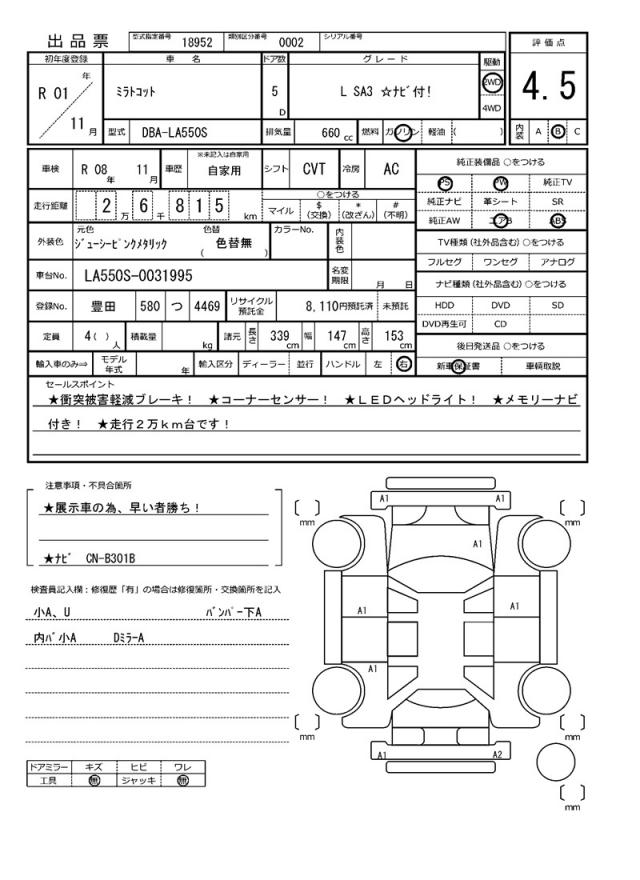 出品票 型式指定番号 18952 類別区分番号 0002 シリアル番号
評価点
4.5
初年度登録 車名 ドア数 グレード 駆動
R 01 年 ミラトコット 5 D L SA3 ☆ナビ付! 2WD
4WD
11 月 型式 DBA-LA550S 排気量 660 cc 燃料 ガソリン 軽油 ( ) 内装 A B C
車検 R 08 年 11 月 車歴 ※未記入は自家用 自家用 シフト CVT 冷房 AC
純正装備品 ○をつける
PS PW 純正TV
走行距離 2 万 6 千 8 1 5 km ○をつける
マイル $(交換) *(改ざん) #(不明)
純正ナビ 革シート SR
純正AW エアB ABS
外装色 元色 ジューシーピンクメタリック 色替 ( 色替無 ) カラーNo. 内装色
TV種類 (社外品含む) ○をつける
フルセグ ワンセグ アナログ
車台No. LA550S-0031995 名変期限 月 日
ナビ種類 (社外品含む) ○をつける
登録No. 豊田 580 つ 4469 リサイクル預託金 8,110円預託済 未預託
HDD DVD SD
DVD再生可 CD
定員 4( ) 人 積載量 kg 諸元 長さ 339 cm 幅 147 cm 高さ 153 cm
後日発送品 ○をつける
輸入車のみ⇒ モデル年式 年 輸入区分 ディーラー 並行 ハンドル 左 右
新車保証書 車輌取説
セールスポイント
★衝突被害軽減ブレーキ! ★コーナーセンサー! ★LEDヘッドライト! ★メモリーナビ
付き! ★走行2万km台です!
注意事項・不具合箇所
★展示車の為、早い者勝ち!
★ナビ CN-B301B
検査員記入欄:修復歴「有」の場合は修復箇所・交換箇所を記入
小A、U バンパー下A
内バ小A DミラーA
ドアミラー キズ ヒビ ワレ
工具 無 ジャッキ 無
A1 A1
A1
A1 A1
A1
A1 A2
mm mm
mm mm
mm